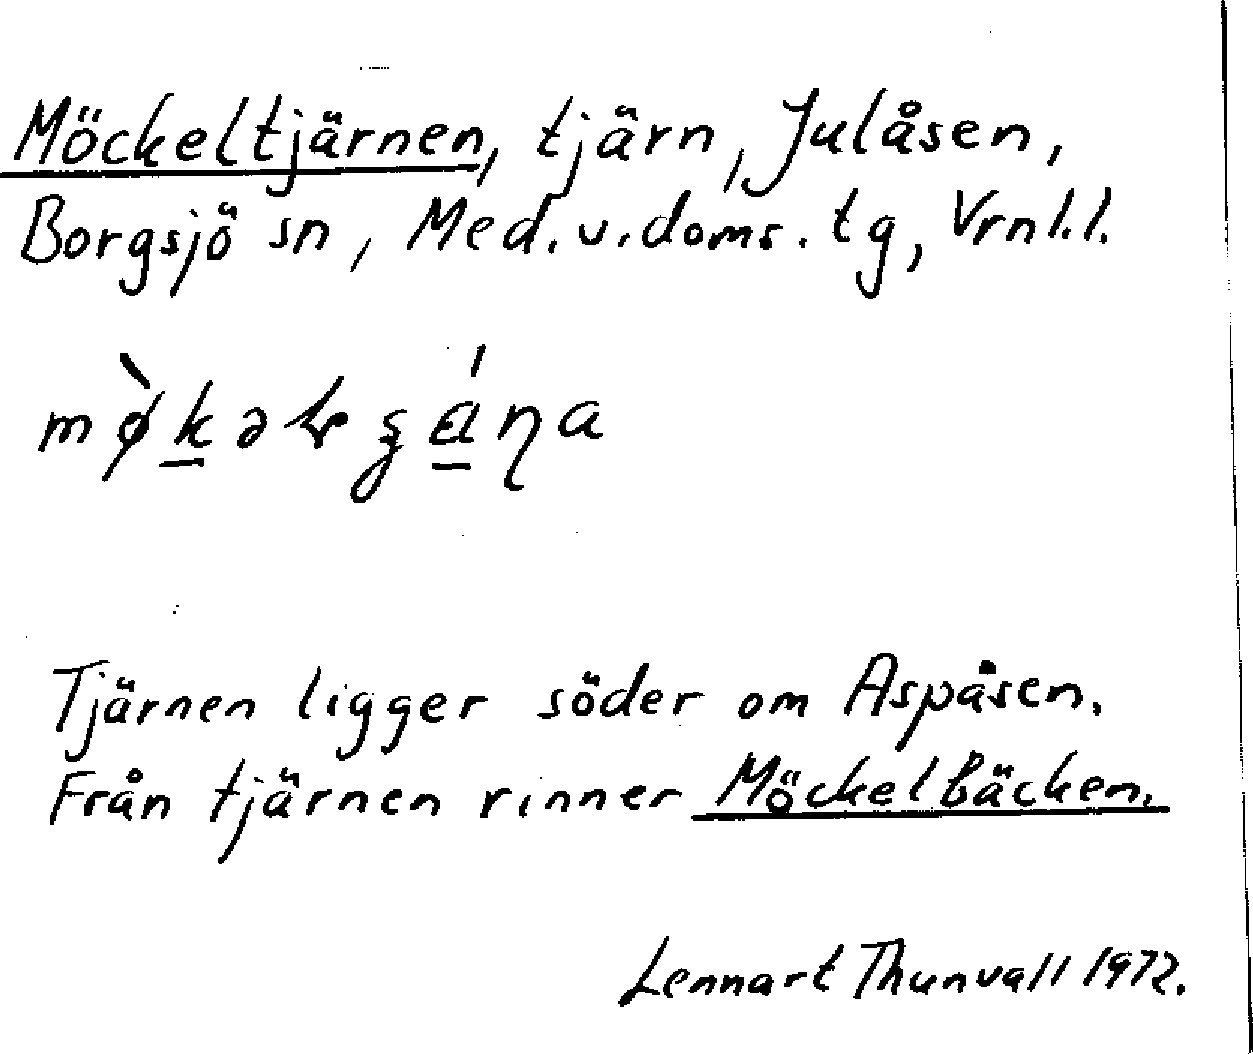 Möckeltjärnen, tjärn, Julåsen,
Borgsjö sn, Med. v. doms. tg, Vrnl. l.
Tjärnen ligger söder om Aspåsen.
Från tjärnen rinner Möckelbäcken.
Lennart Thunvall 1972.